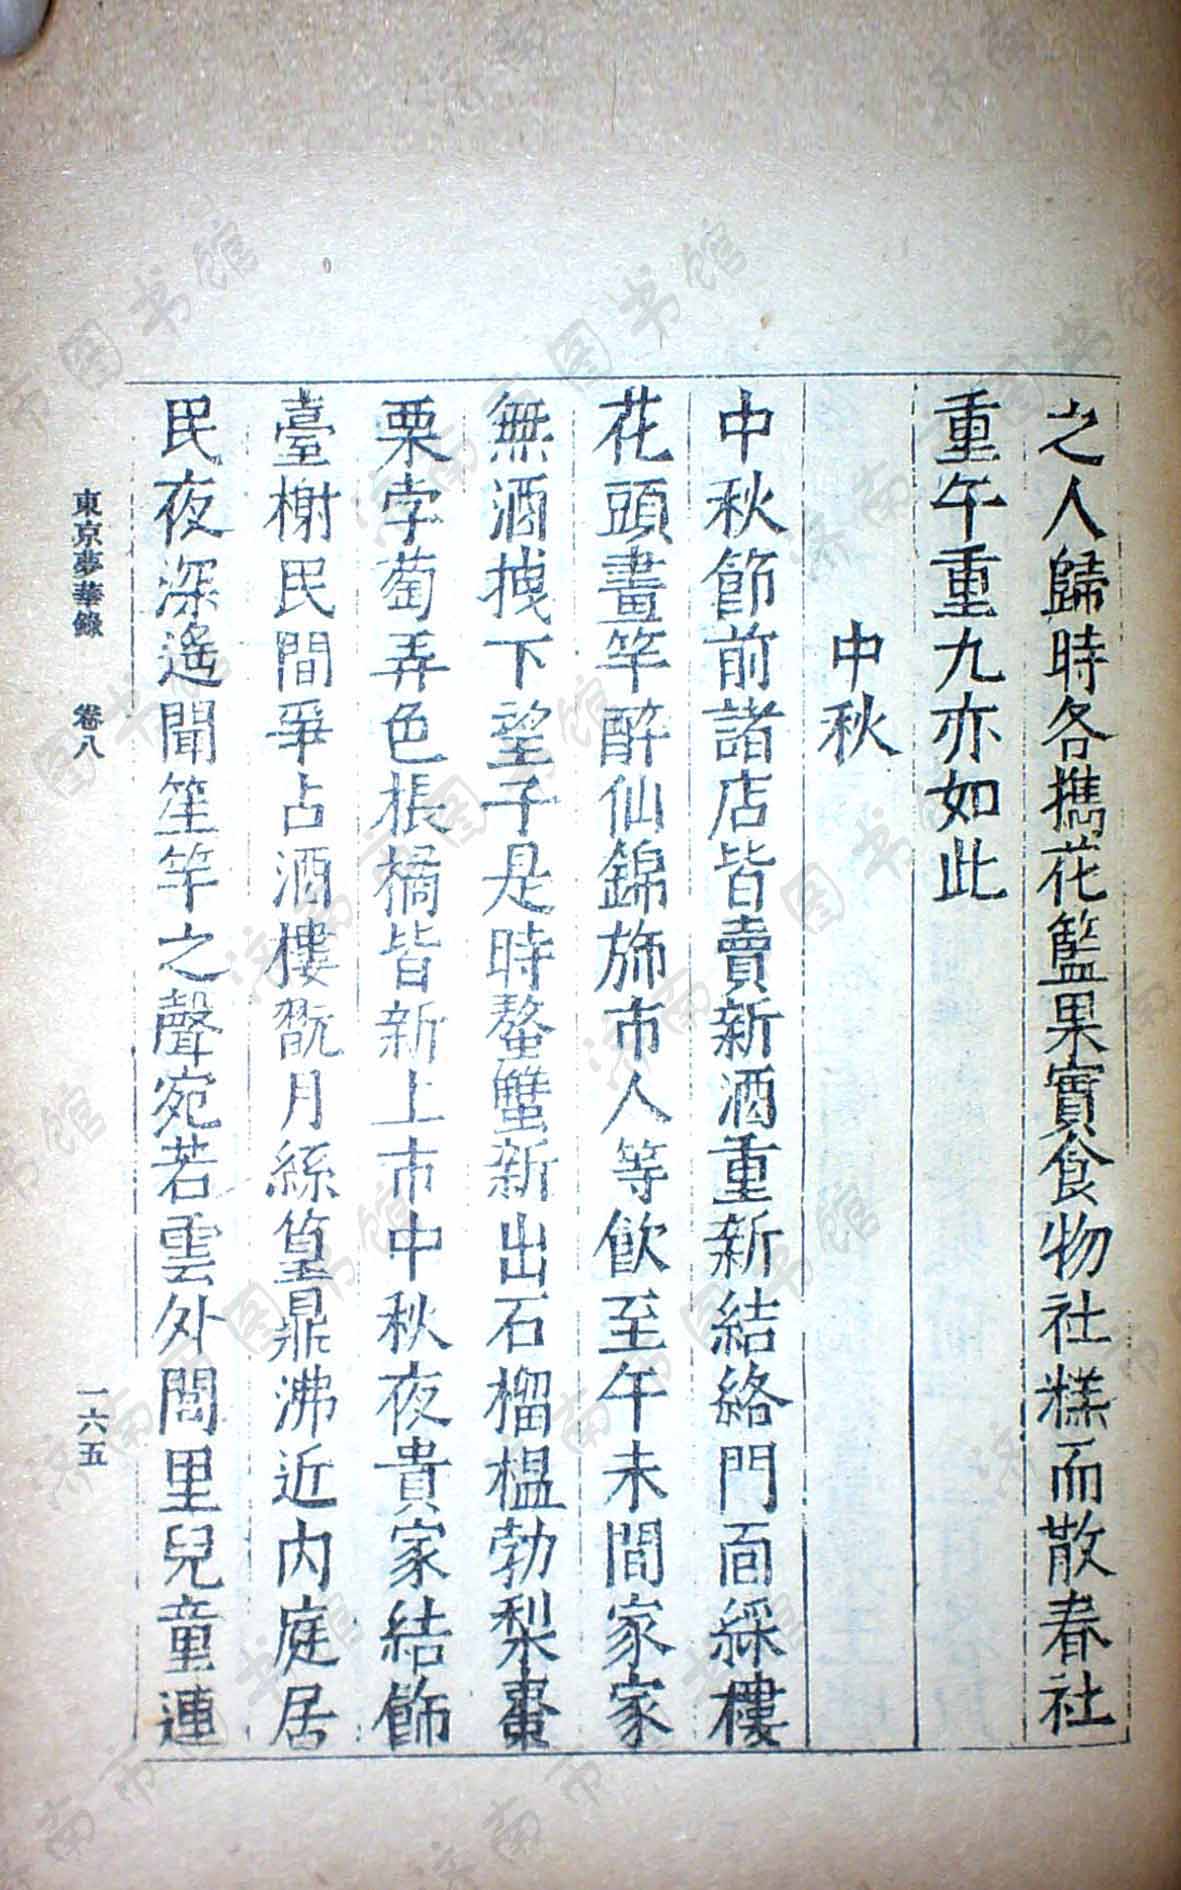 之人歸時各攜花籃果實食物社糕而散春社
重午重九亦如此
中秋
中秋節前諸店皆賣新酒重新結絡門面綵樓
花頭畫竿醉仙錦旆市人爭飲至午未間家家
無酒拽下望子是時螯蟹新出石榴榲勃梨棗
栗孛萄弄色棖橘皆新上市中秋夜貴家結飾
臺榭民間爭占酒樓翫月絲篁鼎沸近內庭居
民夜深遙聞笙竽之聲宛若雲外閭里兒童連
東京夢華錄 卷八 一六五
济南市图书馆